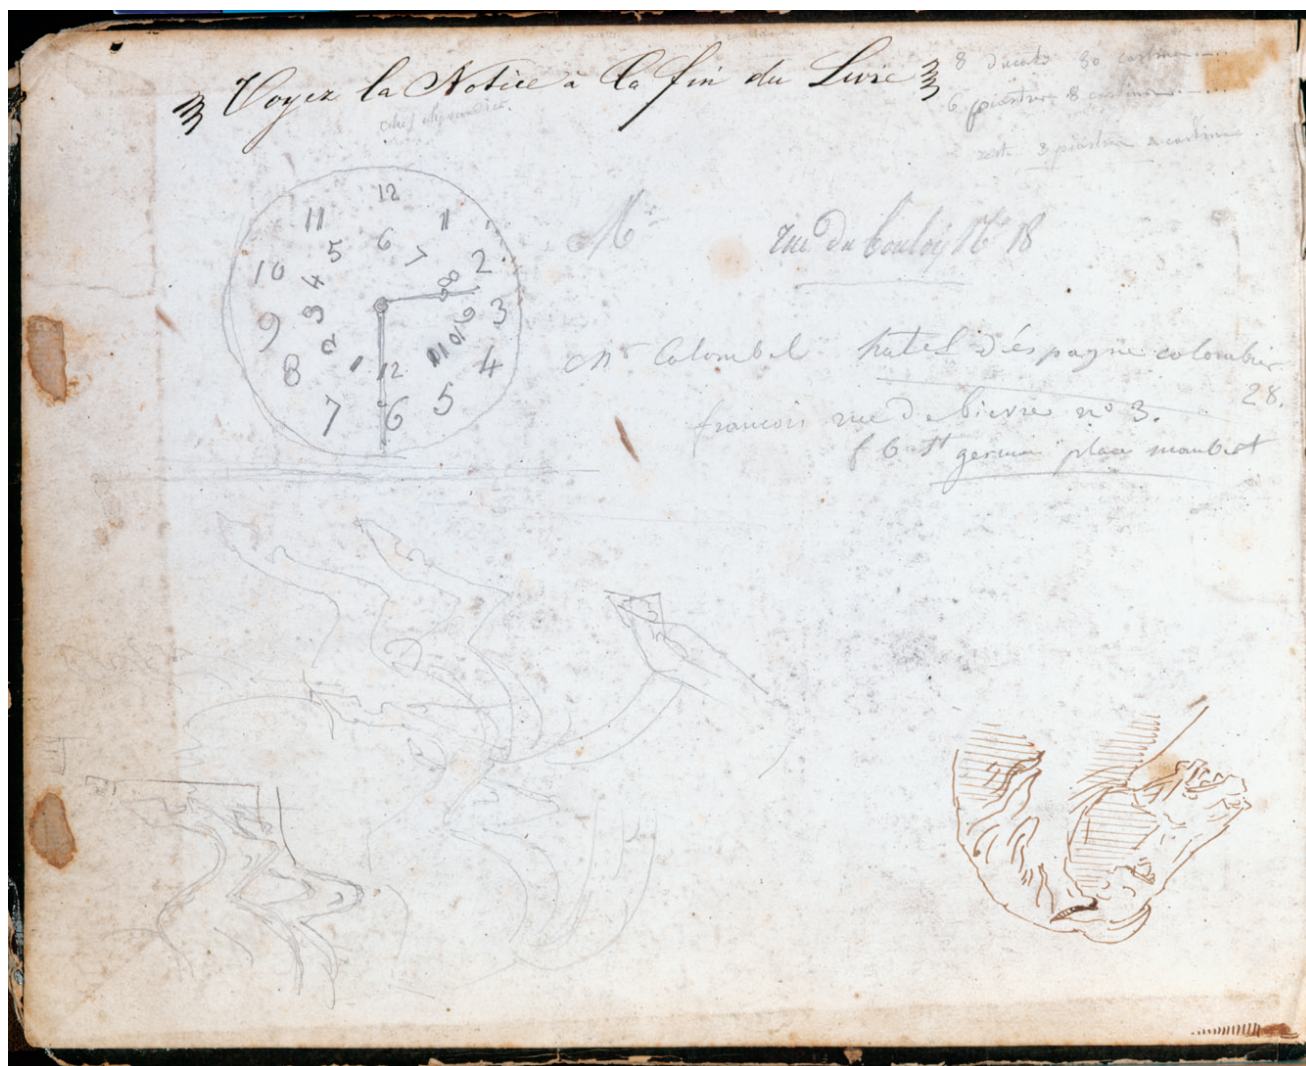 Voyez la Notice à la fin du Livre
8 ducats 30 carlins
6 piastres 8 carlins
reste 3 piastres 2 carlins
12
11 1
5 6 7
10 4 8 2
9 3 9 3
8 2 10 4
1 12 11
7 6 5
M rue du bouloy N° 18
Mr Colombel hotel d'éspagne colombier
28.
francois rue de bievre n° 3.
f b St germain place maubert